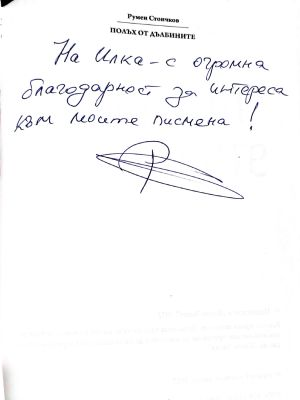 Румен Стоичков
ПОЛЪХ ОТ ДЪЛБИНИТЕ
На Илка - с огромна
благодарност за интереса
към моите писмена!